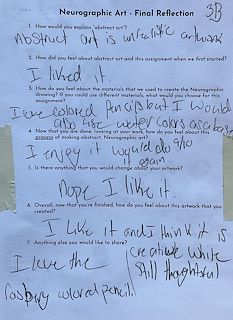 Neurographic Art - Final Reflection
3B
1. How would you explain "abstract art"?
Abstract art is unrealistic artwork
2. How did you feel about abstract art and this assignment when we first started?
I liked it.
3. How do you feel about the materials that we used to create the Neurographic
drawing? If you could use different materials, what would you choose for this
assignment?
I love colored pencils but I would
also like water colors as a base
4. Now that you are done, looking at your work, how do you feel about this
process of making abstract, Neurographic art?
I enjoy it would do this
it again
5. Is there anything that you would change about your artwork?
Nope I like it.
6. Overall, now that you're finished, how do you feel about this artwork that you
created?
I like it and I think it is
creative while
still thoughtful
7. Anything else you would like to share?
I love the
colored pencils!